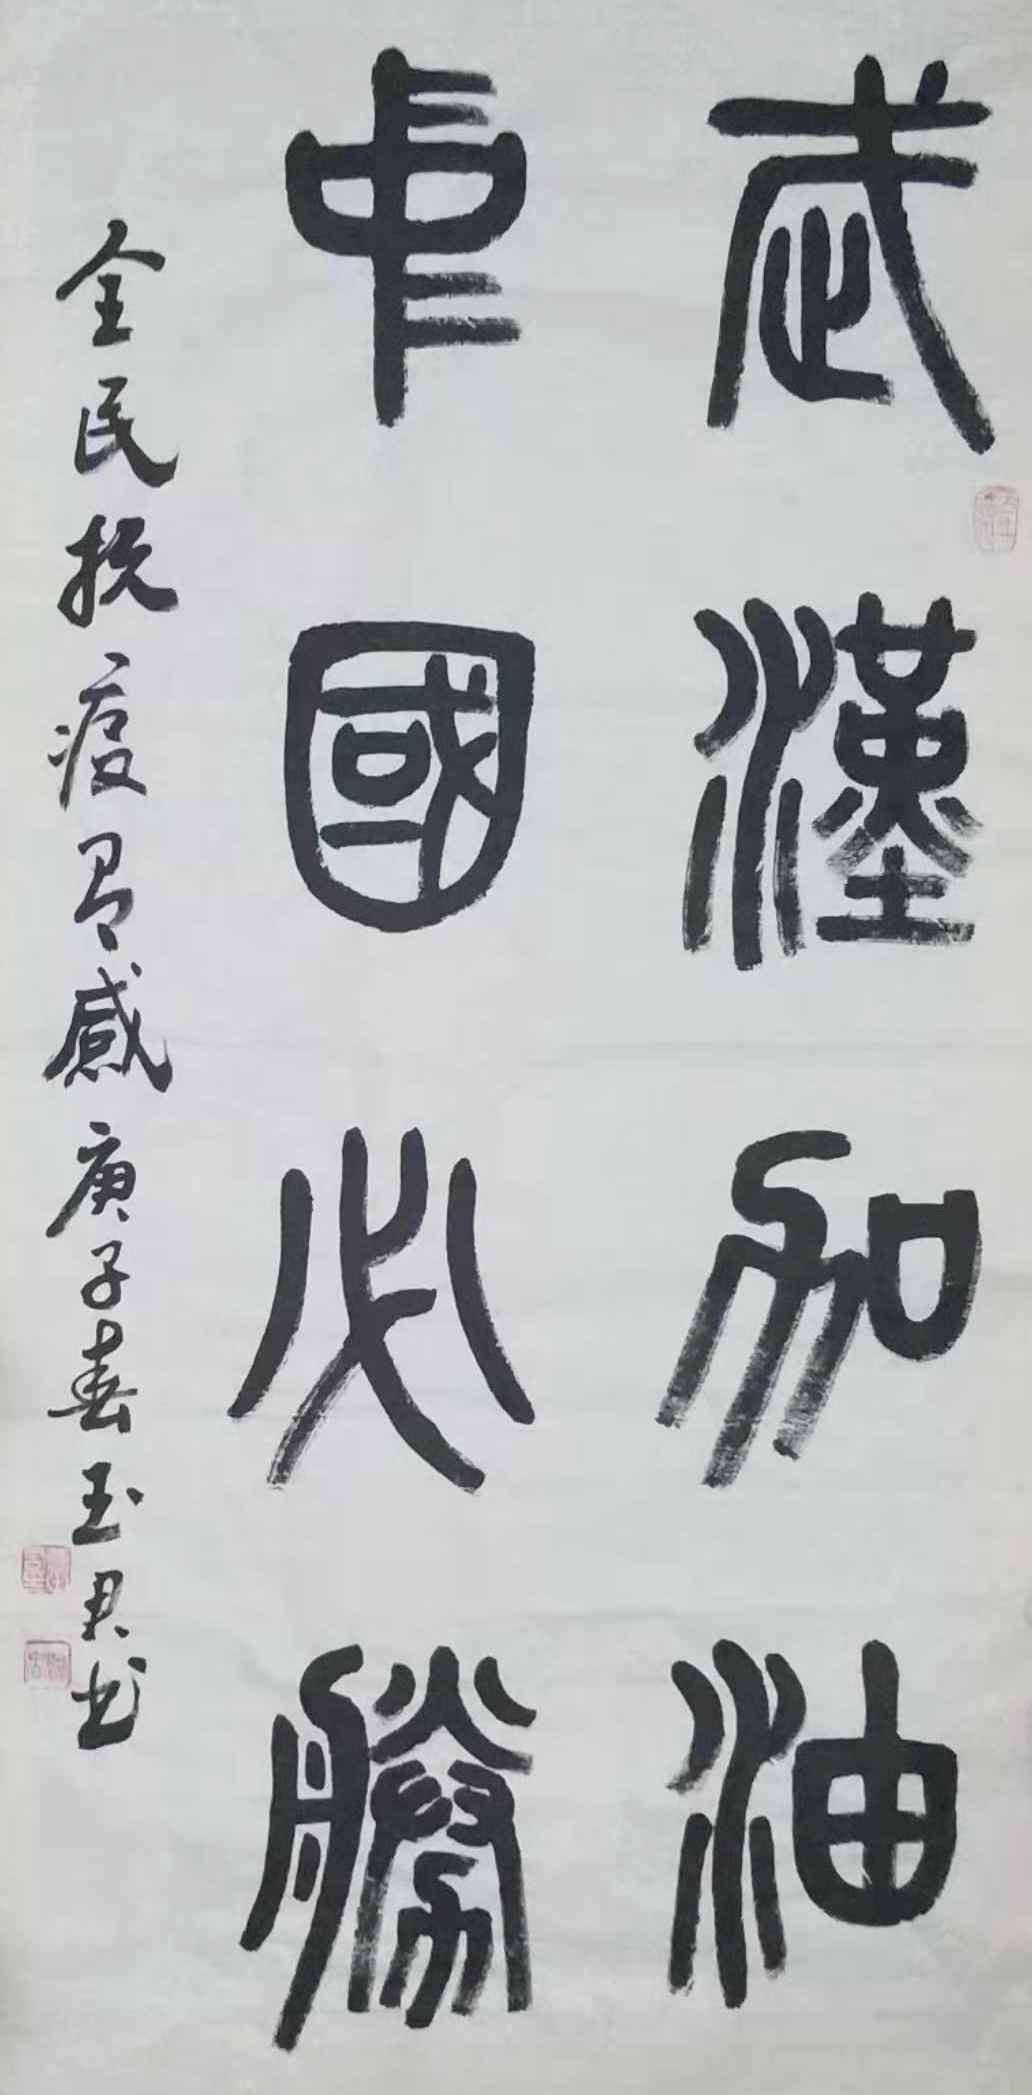 武漢加油
中國必勝
全民抗疫有感 庚子春玉君书